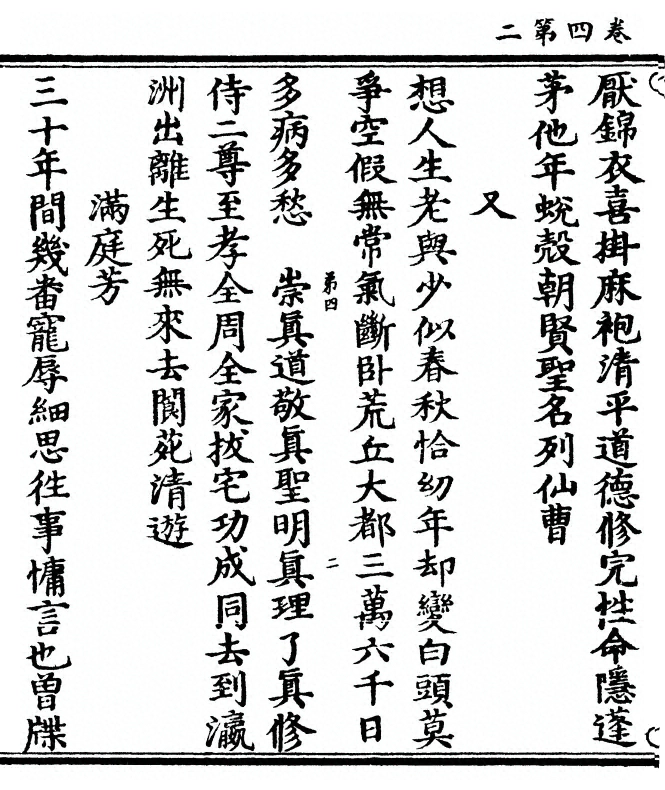 卷四第二
厭錦衣喜掛麻袍清平道德修完性命隱蓬
茅他年蛻殼朝賢聖名列仙曹
又
想人生老與少似春秋恰幼年却變白頭莫
爭空假無常氣斷卧荒丘大都三萬六千日
第四
二
多病多愁　崇眞道敬眞聖明眞理了眞修
侍二尊至孝全周全家拔宅功成同去到瀛
洲出離生死無來去閬苑清遊
滿庭芳
三十年間幾番寵辱細思往事慵言也曾牒